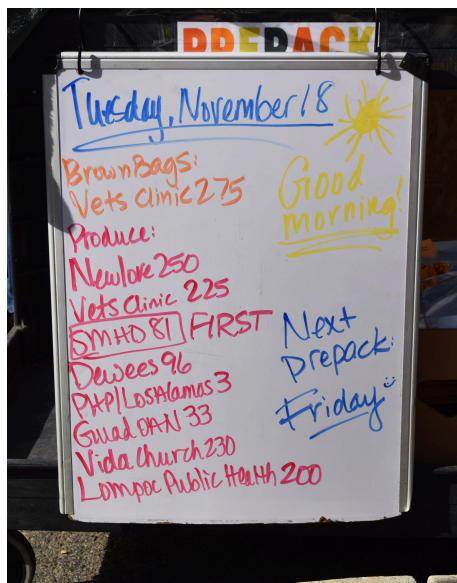 PREPACK
Tuesday, November 18
Brown Bags:
Vets Clinic 275
Good
morning!
Produce:
Newlove 250
Vets Clinic 225
SMHD 81 FIRST
Dewees 96
PHP/Los Alamos 3
Guad OAN 33
Vida Church 230
Lompoc Public Health 200
Next
prepack:
Friday